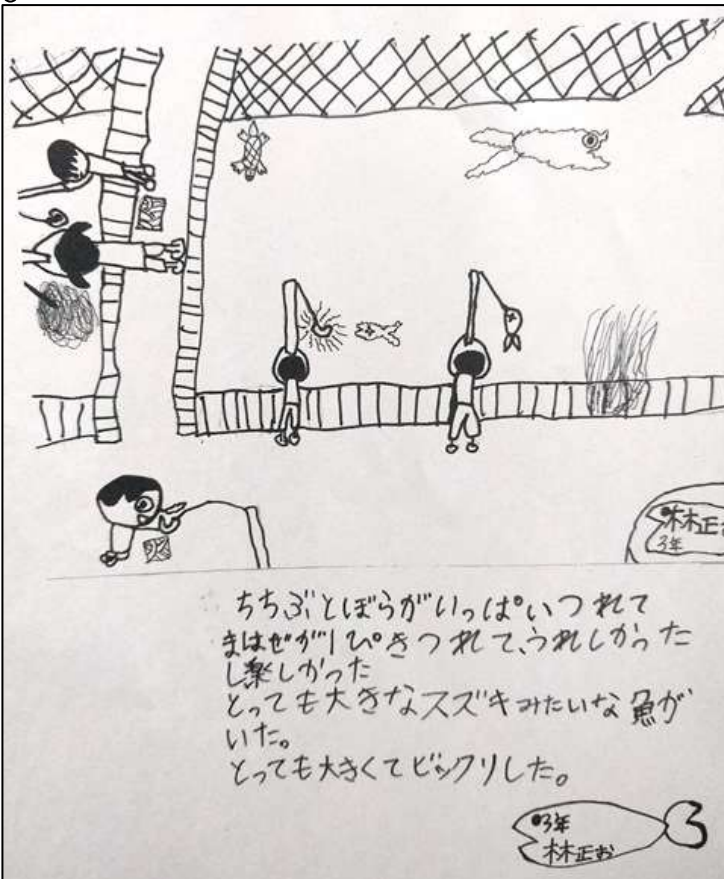 林正
3年
ちちぶとぼらがいっぱいつれて
まはぜが1ぴきつれて、うれしかった
し楽しかった
とっても大きなスズキみたいな魚が
いた。
とっても大きくてビックリした。
3年
林正お